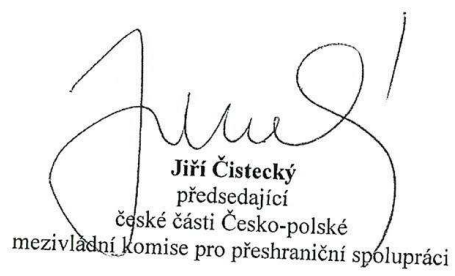 Jiří Čistecký
předsedající
české části Česko-polské
mezivládní komise pro přeshraniční spolupráci